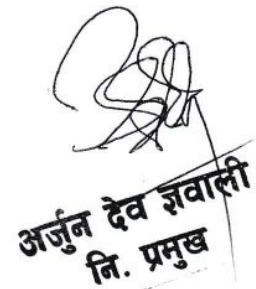 अर्जुन देव ज्ञवाली
नि. प्रमुख